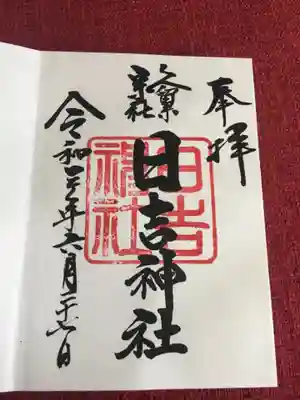 奉拝
日吉神社
日吉神社
令和三年六月二十七日